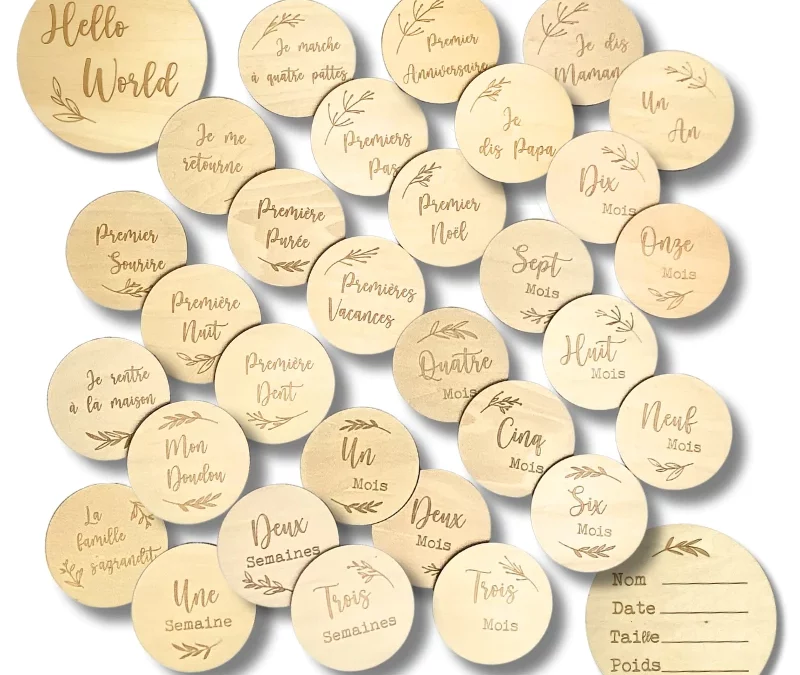 Hello
World
Je marche
à quatre pattes
Premier
Anniversaire
Je dis
Maman
Je me
retourne
Premiers
Pas
Je
dis Papa
Un
An
Première
Purée
Premier
Noël
Dix
Mois
Premier
Sourire
Premières
Vacances
Sept
Mois
Onze
Mois
Première
Nuit
Quatre
Mois
Huit
Mois
Je rentre
à la maison
Première
Dent
Cinq
Mois
Neuf
Mois
Mon
Doudou
Un
Mois
Six
Mois
La
famille
s'agrandit
Deux
Semaines
Deux
Mois
Une
Semaine
Trois
Semaines
Trois
Mois
Nom
Date
Taille
Poids